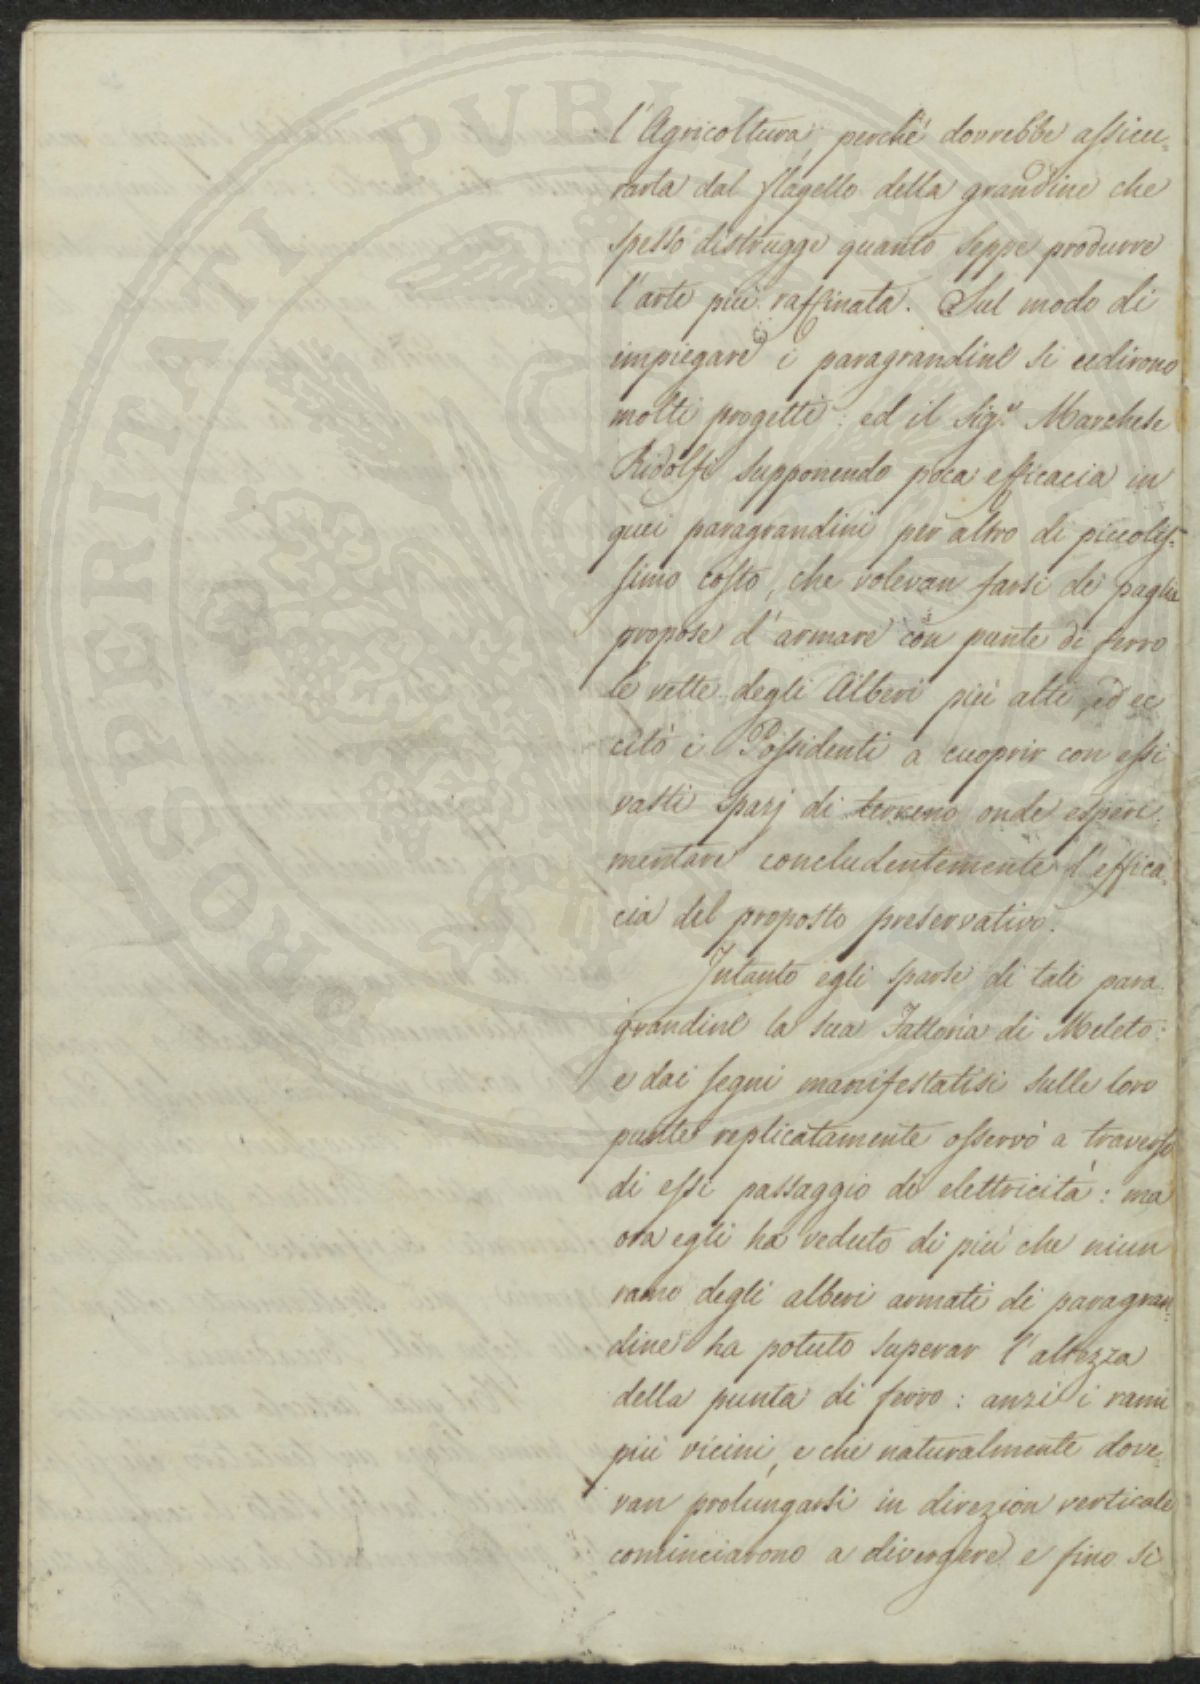 l'Agricoltura, perchè dovrebbe assicu=
rarla dal flagello della grandine che
spesso distrugge quanto seppe produrre
l'arte più raffinata. Sul modo di
impiegare i paragrandini si udirono
molti progetti: ed il Sig.r Marchese
Ridolfi supponendo poca efficacia in
quei paragrandini per altro di piccolis=
simo costo, che volevan farsi di paglia
propose d'armare con punte di ferro
le vette degli Alberi più alti, ed ec
citò i Possidenti a cuoprir con essi
vasti spazj di terreno onde esperi=
mentare concludentemente l'effica=
cia del proposto preservativo.
Intanto egli sparse di tali para
grandini la sua Fattoria di Meleto:
e dai segni manifestatisi sulle loro
punte replicatamente osservò a traverso
di essi passaggio di elettricità: ma
ora egli ha veduto di più che niun
ramo degli alberi armati di paragran=
dine ha potuto superar l'altezza
della punta di ferro: anzi i rami
più vicini, e che naturalmente dove=
van prolungarsi in direzion verticale
cominciarono a divergere e fino si
PROSPERITATI PUBLICAE